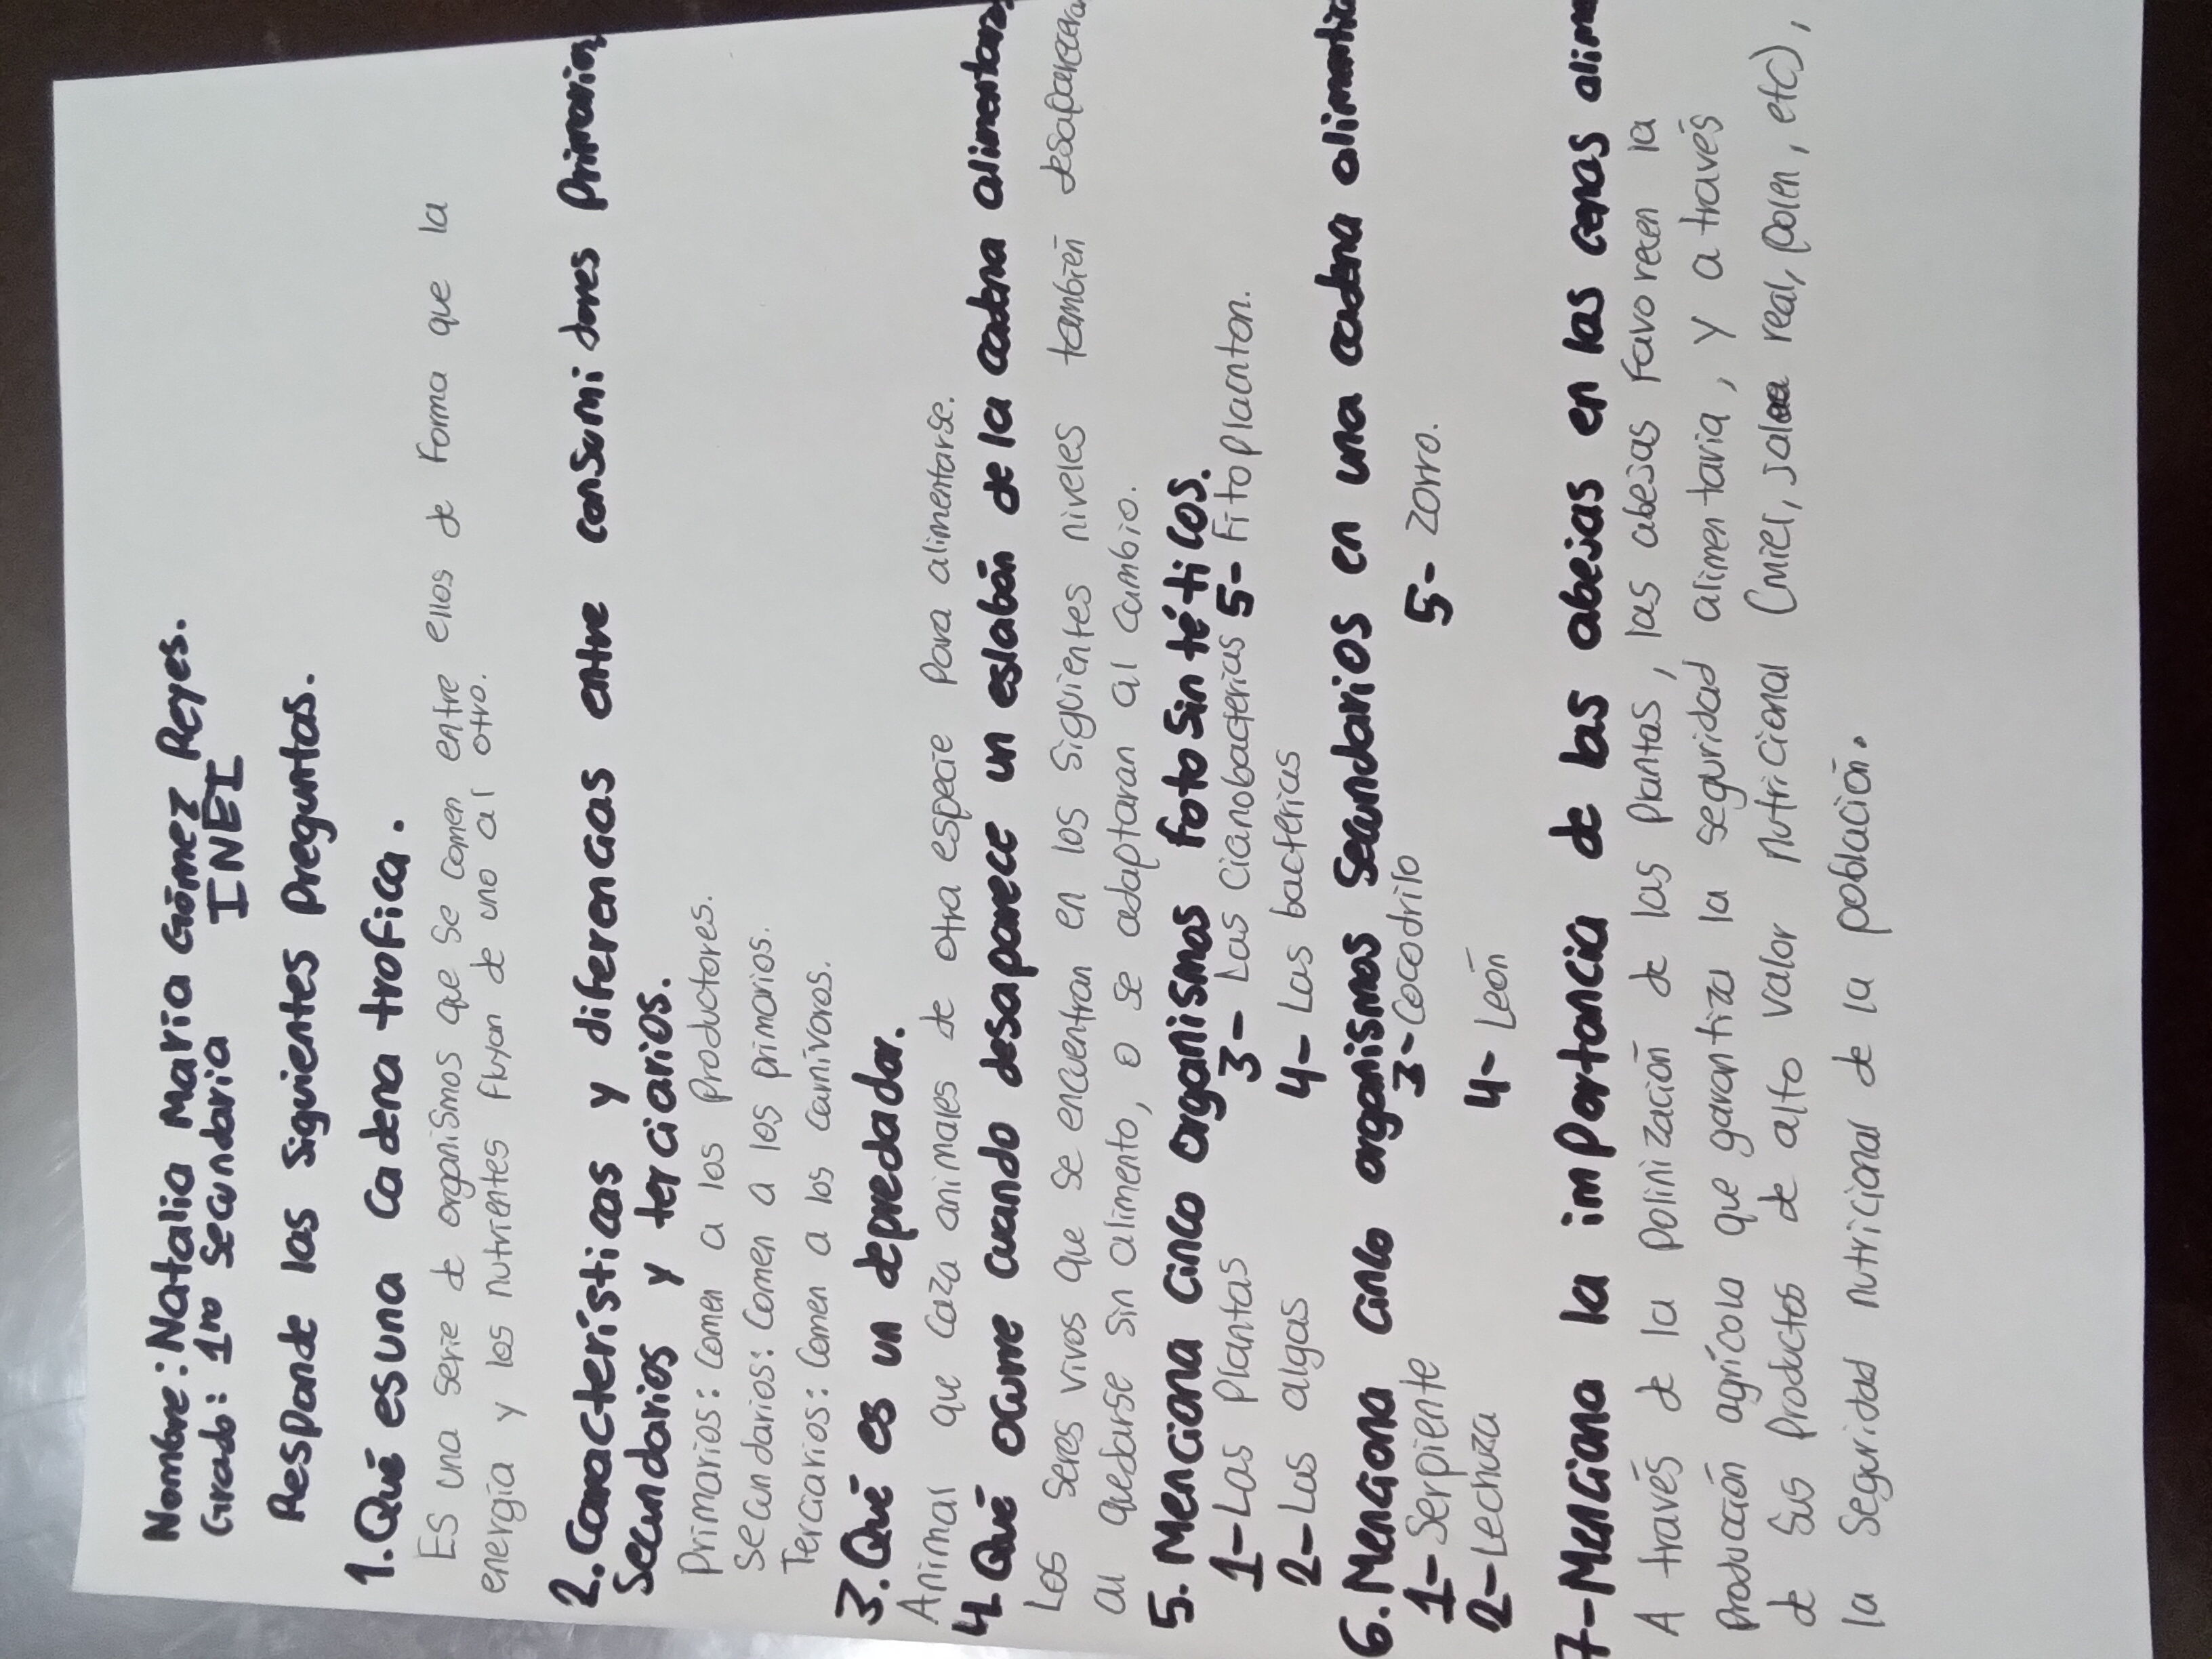 Nombre: Natalia María Gómez Reyes.
Grado: 1ro secundaria INEI
Responde las siguientes preguntas.
1. Qué es una cadena trofica.
Es una serie de organismos que se comen entre ellos de forma que la
energía y los nutrientes fluyan de uno al otro.
2. Características y diferencias entre consumidores primarios,
secundarios y terciarios.
Primarios: comen a los productores.
Secundarios: comen a los primarios.
Terciarios: comen a los carnívoros.
3. Qué es un depredador.
Animal que caza animales de otra especie para alimentarse.
4. Qué ocurre cuando desaparece un eslabón de la cadena
Los seres vivos que se encuentran en los siguientes niveles también
al quedarse sin alimento, o se adaptaran al cambio.
5. Menciona cinco organismos fotosintéticos.
1- Las plantas 3- Las cianobacterias 5- Fitoplacnton.
2- Las algas 4- Las bacterias
6. Menciona cinco organismos secundarios en una cadena
1- Serpiente 3- Cocodrilo 5- Zorro.
2- Lechuza 4- León
7- Menciona la importancia de las abejas en las
A través de la polinización de las plantas, las abejas favorecen la
producción agrícola que garantiza la seguridad alimentaria, y a través
de sus productos de alto valor nutricional (miel, jalea real, polen, etc),
la seguridad nutricional de la población.